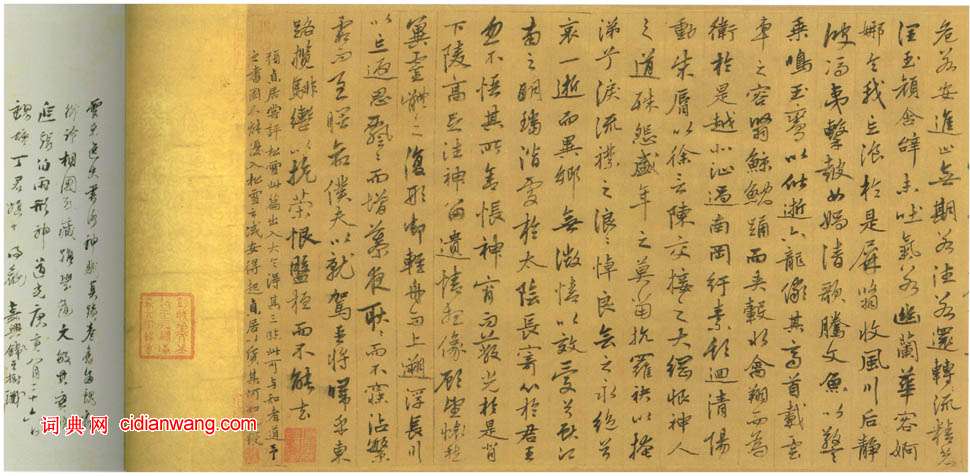 危若安進止無期若往若還轉流精光
潤玉顏含辭未吐氣若幽蘭華容婀
娜令我忘湌於是屏翳收風川后靜
波馮夷擊鼓女媧清歌騰文魚以警
乘鳴玉鸞以偕逝六龍儼其齊首載雲
車之容裔鯨鯢踊而夾轂水禽翔而為
衛於是越北沚過南岡紆素領迴清陽
動朱脣以徐言陳交接之大綱恨神人
之道殊怨盛年之莫當抗羅袂以掩
涕兮淚流襟之浪浪悼良會之永絕兮
哀一逝而異鄉無微情以效愛兮獻江
南之明璫潛處於太陰長寄心於君王
忽不悟其所舍悵神宵而蔽光於是背
下陵高足往神留遺情想像顧望懷愁
冀靈體之復形御輕舟而上溯浮長川
以忘返思緜緜而增慕夜耿耿而不寐沾繁
霜而至曙命僕夫以就駕吾將歸乎東
路攬騑轡以抗策恨盤桓而不能去
自居嘗評松雪此篇出入大令得其三昧此可與知者道予
書固不能 入松雪室 安得起自居
形神 道光庚寅八月二十六日
嘉興錢
词典网 cidianwang.com